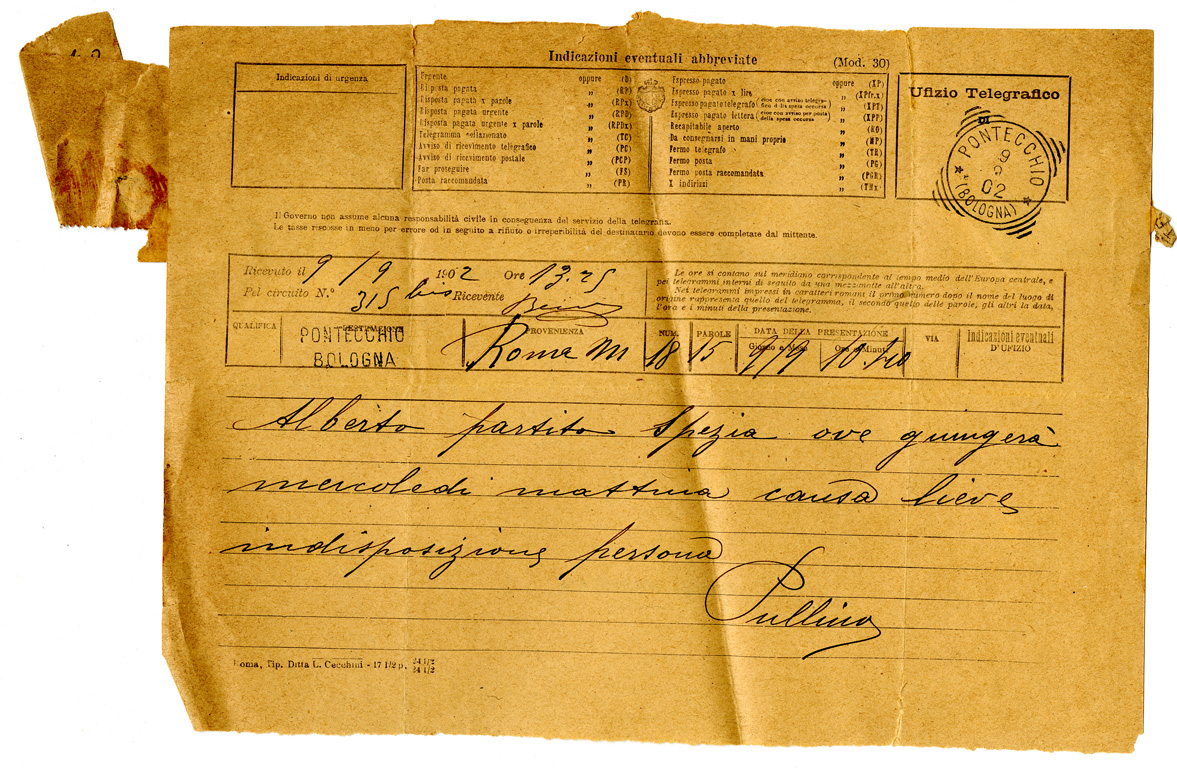 Indicazioni eventuali abbreviate
(Mod. 30)
Indicazioni di urgenza
Urgente oppure (D)
Risposta pagata „ (RP)
Risposta pagata x parole „ (RPx)
Risposta pagata urgente „ (RPD)
Risposta pagata urgente x parole „ (RPDx)
Telegramma collazionato „ (TC)
Avviso di ricevimento telegrafico „ (PC)
Avviso di ricevimento postale „ (PCP)
Far proseguire „ (FS)
Posta raccomandata „ (PR)
Espresso pagato oppure (XP)
Espresso pagato x lire „ (XPfr.x)
Espresso pagato telegrafo (cioè con avviso telegrafico della spesa occorsa) „ (XPT)
Espresso pagato lettera (cioè con avviso per posta della spesa occorsa) „ (XPP)
Recapitabile aperto „ (RO)
Da consegnarsi in mani proprie „ (MP)
Fermo telegrafo „ (TR)
Fermo posta „ (PG)
Fermo posta raccomandata „ (PGR)
X indirizzi „ (TMx)
Ufizio Telegrafico
DI
PONTECCHIO
9
9
02
(BOLOGNA)
Il Governo non assume alcuna responsabilità civile in conseguenza del servizio della telegrafia.
Le tasse riscosse in meno per errore od in seguito a rifiuto o irreperibilità del destinatario devono essere completate dal mittente.
Ricevuto il 9/9 1902 Ore 13.25
Pel circuito N.° 315 bis Ricevente
Le ore si contano sul meridiano corrispondente al tempo medio dell'Europa centrale, e
pei telegrammi interni di seguito da una mezzanotte all'altra.
Nei telegrammi impressi in caratteri romani il primo numero dopo il nome del luogo di
origine rappresenta quello del telegramma, il secondo quello delle parole, gli altri la data,
l'ora e i minuti della presentazione.
QUALIFICA DESTINAZIONE PROVENIENZA NUM. PAROLE DATA DELLA PRESENTAZIONE VIA Indicazioni eventuali
Giorno e Mese Ora e Minuti D'UFIZIO
PONTECCHIO
BOLOGNA
Roma M 18 15 9/9 10.40
Alberto partito Spezia ove giungerà
mercoledi mattina causa lieve
indisposizione persona
Pullino
Roma, Tip. Ditta L. Cecchini - 17 1/2 p. 24 1/2
24 1/2